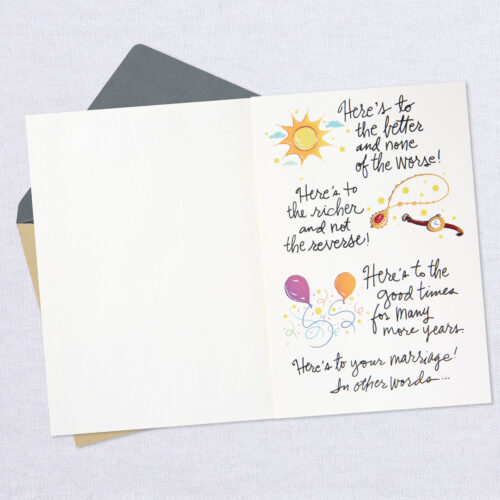 Here's to
the better
and none
of the worse!
Here's to
the richer
and not
the reverse!
Here's to the
good times
for many
more years.
Here's to your marriage!
In other words...